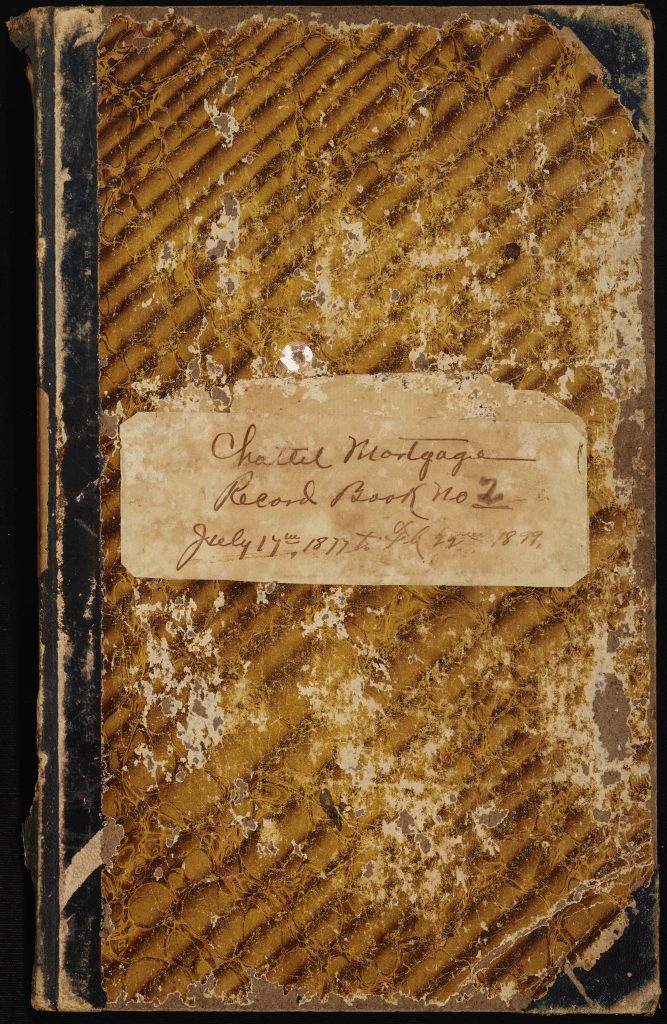 Chattel Mortgage
Record Book No 2
July 17th 1877 to Feb 22nd 1879.